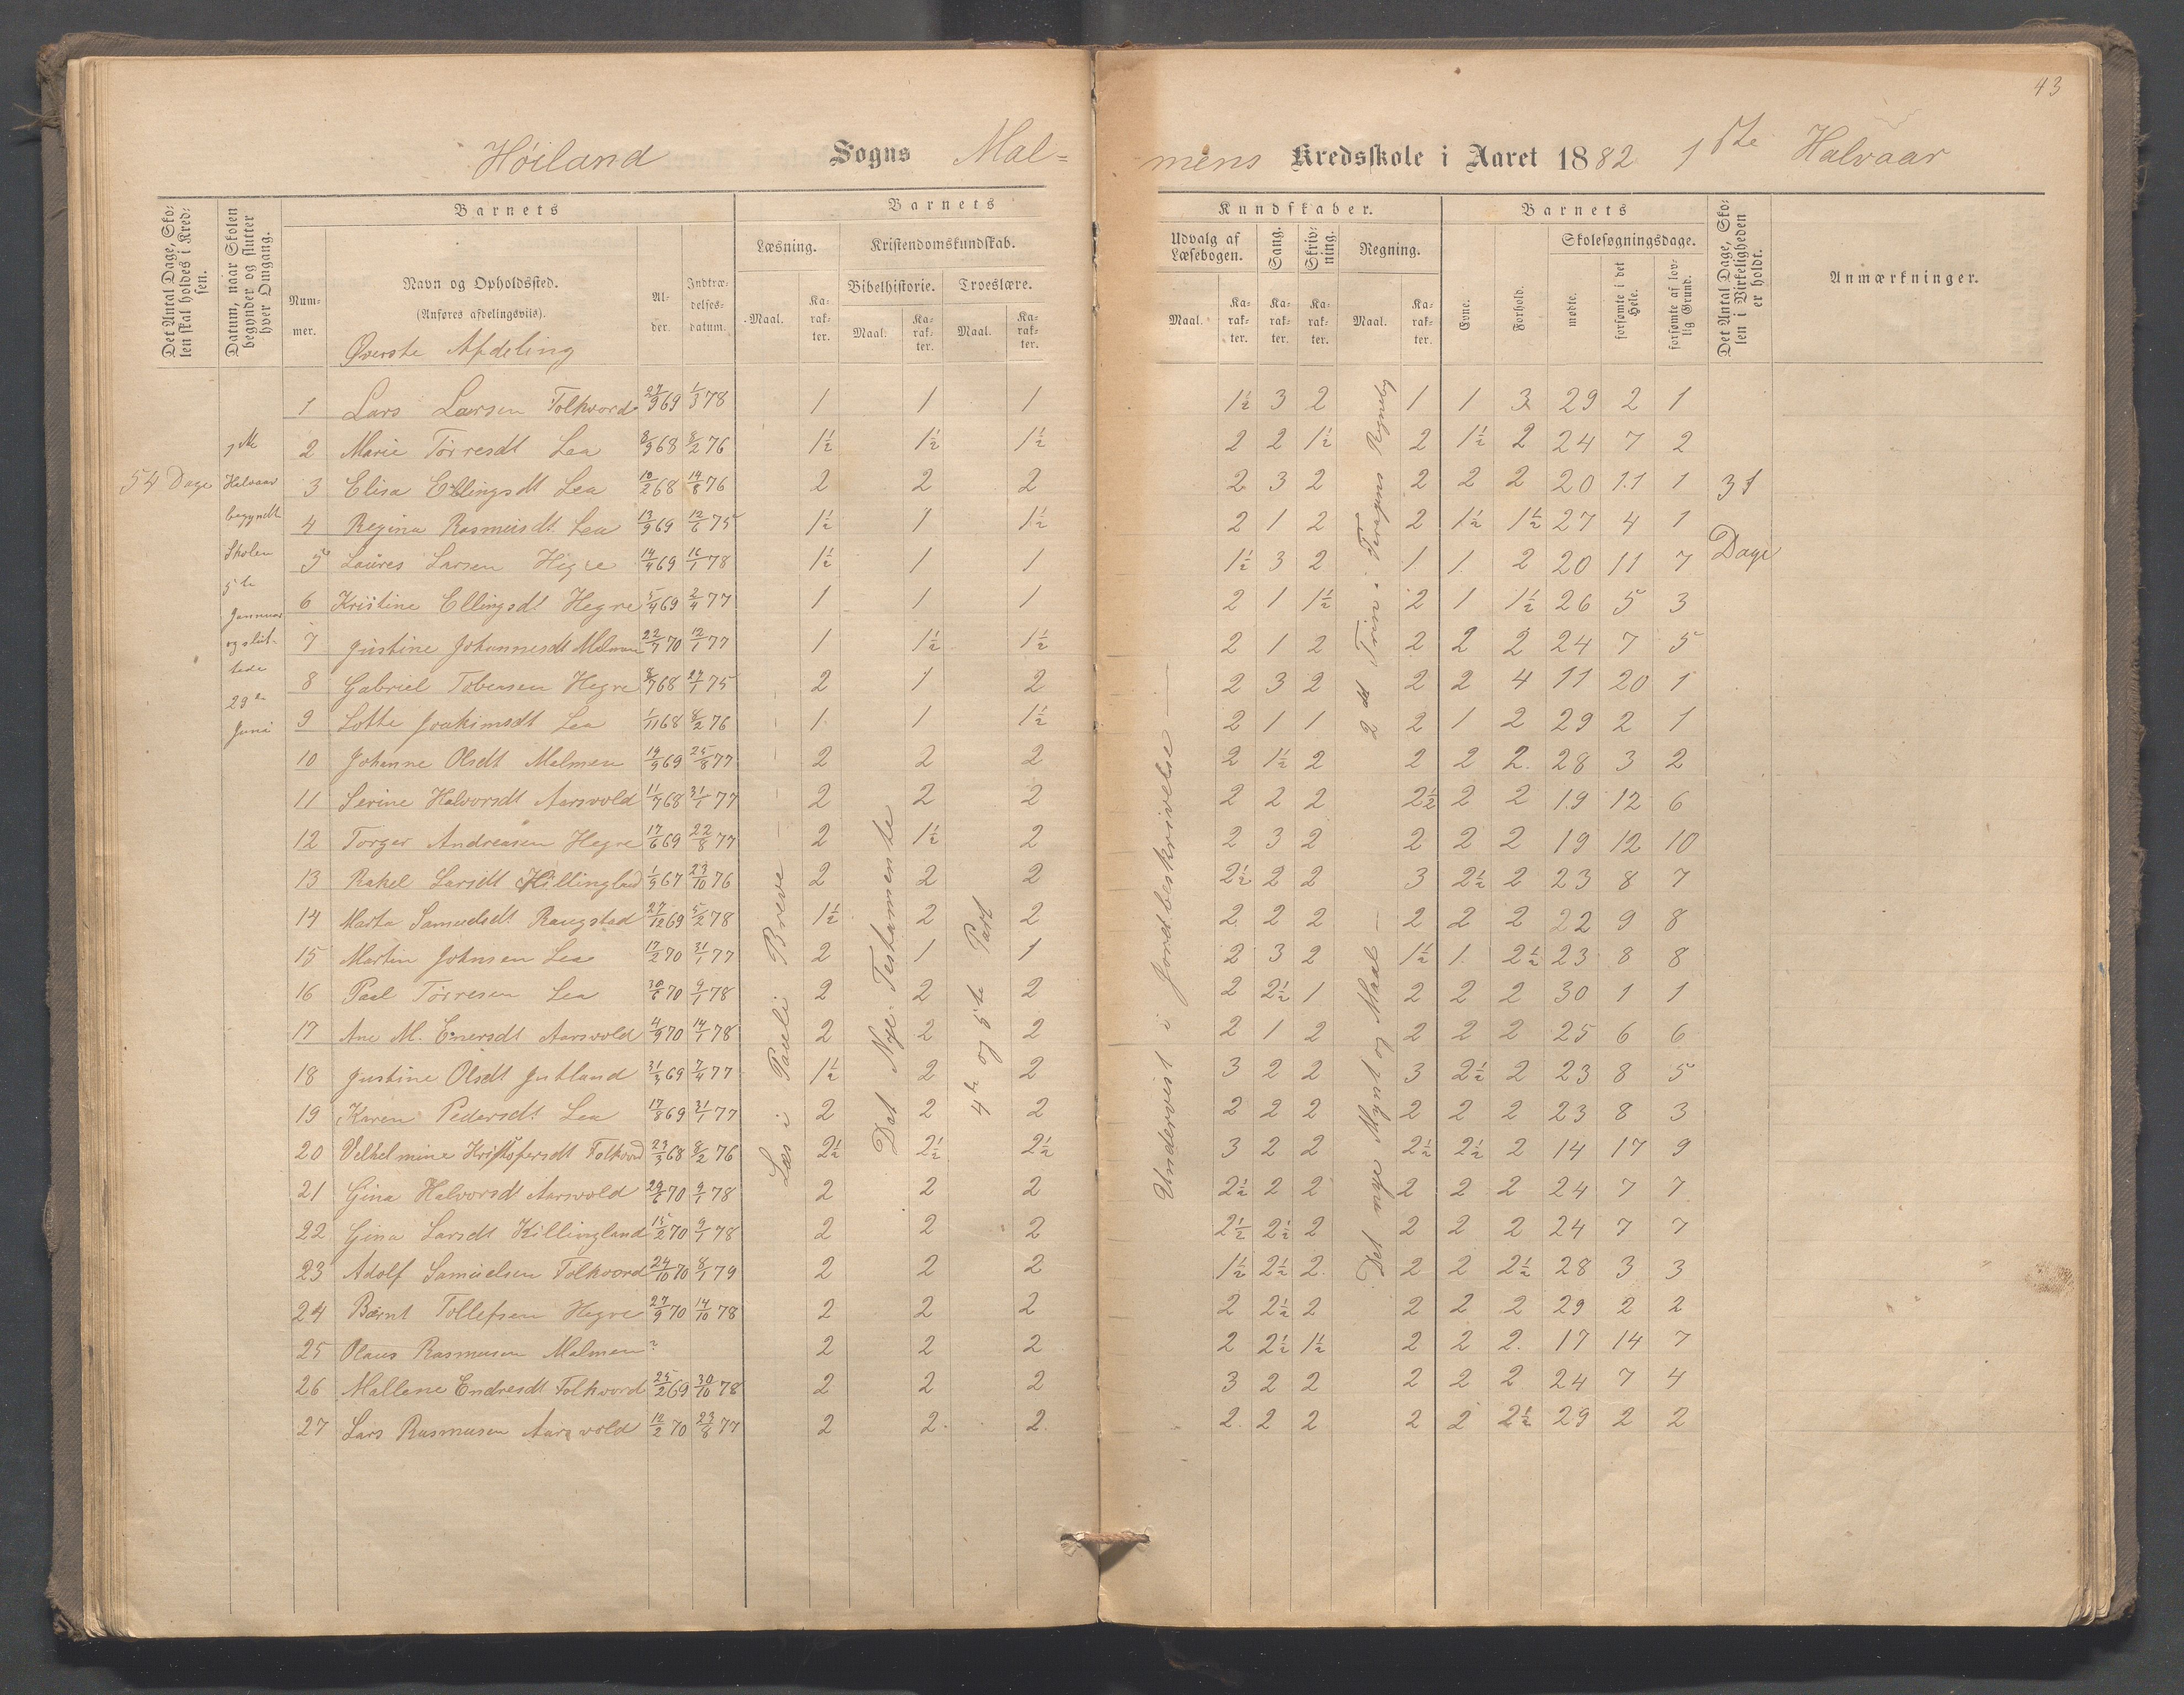 43
Høiland Sogns Mal=
mens Kredsskole i Aaret 1882 1ste Halvaar
Det Antal Dage, Skolen skal holdes i Kredsen.
Datum, naar Skolen begynder og slutter hver Omgang.
Barnets
Nummer.
Navn og Opholdssted.
(Anføres afdelingsviis).
Øverste Afdeling
Alder.
Indtrædelsesdatum.
Barnets
Læsning.
Maal.
Karakter.
Kristendomskundskab.
Bibelhistorie.
Maal.
Karakter.
Troeslære.
Maal.
Karakter.
Kundskaber.
Udvalg af Læsebogen.
Maal.
Karakter.
Sang.
Karakter.
Skrivning.
Karakter.
Regning.
Maal.
Karakter.
Barnets
Evne.
Forhold.
Skolesøgningsdage.
mødte.
forsømte i det Hele.
forsømte af lovlig Grund.
Det Antal Dage, Skolen i Virkeligheden er holdt.
Anmærkninger.
54 Dage
1ste
Halvaar
begyndte
Skolen
5te
Januar
og slut-
tede
23de
Juni
Læs i Pauli Breve
Det Nye Testamente
4de og 5te Part
Undervist i Jordbeskrivelse
31
Dage
1 Lars Larsen Folkvord 27/9 69 1/3 78 1 1 1 1½ 3 2 1 1 3 29 2 1
2 Marie Torresdt Lea 8/9 68 8/2 76 1½ 1½ 1½ 2 2 1½ 2 1½ 2 24 7 2
3 Elisa Ellingsdt Lea 10/2 68 14/8 76 2 2 2 2 3 2 2 2 2 20 11 1
4 Regina Rasmusdt Lea 13/9 69 12/6 75 1½ 1 1½ 2 1 2 2 1½ 1½ 27 4 1
5 Laures Larsen Hegre 14/4 69 16/1 78 1½ 1 1 1½ 3 2 1 1 2 20 11 7
6 Kristine Ellingsdt Hegre 5/4 69 2/4 77 1 1 1 2 1 1½ 2 1 1½ 26 5 3
7 Justine Johannesdt Malmen 22/7 70 12/1 77 1 1½ 1½ 2 1 2 2 2 2 24 7 5
8 Gabriel Tobiasen Hegre 8/7 68 27/1 75 2 1 2 2 3 2 2 2 4 11 20 1
9 Lotte Joakimsdt Lea 1/11 68 8/2 76 1 1 1½ 2 1 1 2 1 2 29 2 1
10 Johanne Olsdt Malmen 19/9 69 25/8 77 2 2 2 2 1½ 2 2 2 2 28 3 2
11 Serine Halvorsdt Aarsvold 11/7 68 31/1 77 2 2 2 2 2 2 2½ 2 2 19 12 6
12 Torger Andreasen Hegre 17/6 69 22/8 77 2 1½ 2 2 3 2 2 2 2 19 12 10
13 Rakel Larsdt Killingland 1/9 67 23/10 76 2 2 2 2½ 2 2 3 2½ 2 23 8 7
14 Marta Samuelsdt Raugstad 27/12 69 5/2 78 1½ 2 2 2 2 2 2 2 2 22 9 8
15 Martin Johnsen Lea 17/2 70 31/1 77 2 1 1 2 3 2 1½ 1 2½ 23 8 8
16 Paal Torresen Lea 30/6 70 9/1 78 2 2 2 2 2½ 1 2 2 2 30 1 1
17 Ane M. Enersdt Aarsvold 4/9 70 14/1 78 2 2 2 2 1 2 2 2 2 25 6 6
18 Justine Olsdt Jutland 31/3 69 7/4 77 1½ 2 2 3 2 2 3 2½ 2 23 8 5
19 Karen Pedersdt Lea 17/8 69 31/1 77 2 2 2 2 2 2 2 2 2 23 8 3
20 Velhelmine Kristofersdt Folkvord 23/3 68 8/2 76 2½ 2½ 2½ 3 2 2 2½ 2½ 2 14 17 9
21 Gina Halvorsdt Aarsvold 29/6 70 9/1 78 2 2 2 2½ 2 2 2 2 2 24 7 7
22 Gina Larsdt Killingland 15/2 70 9/1 78 2 2 2 2½ 2½ 2 2 2 2 24 7 7
23 Adolf Samuelsen Folkvord 24/10 70 8/1 79 2 2 2 1½ 2½ 2 2 2 2½ 28 3 3
24 Bernt Tollefsen Hegre 27/9 70 14/10 78 2 2 2 2 2½ 2 2 2 2 29 2 2
25 Olaus Rasmusen Malmen ? 2 2 2 2 2½ 1½ 2 2 2 17 14 7
26 Mallene Endresdt Folkvord 25/2 69 30/10 78 2 2 2 3 2 2 2 2 2 24 7 4
27 Lars Rasmusen Aarsvold 10/2 70 23/8 77 2 2 2 2 2 2 2 2 2½ 29 2 2